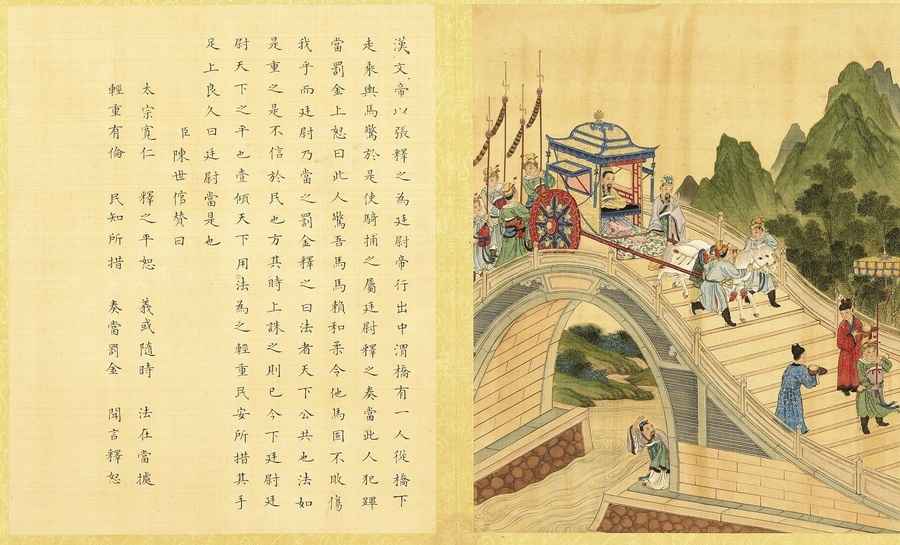 漢文帝以張釋之為廷尉帝行出中渭橋有一人從橋下
走乘輿馬驚於是使騎捕之屬廷尉釋之奏當此人犯蹕
當罰金上怒曰此人驚吾馬馬賴和柔令他馬固不敗傷
我乎而廷尉乃當之罰金釋之曰法者天下公共也法如
是重之是不信於民也方其時上誅之則已今下廷尉廷
尉天下之平也壹傾天下用法為之輕重民安所措其手
足上良久曰廷尉當是也
臣陳世倌贊曰
太宗寬仁 釋之平恕 義或隨時 法在當據
輕重有倫 民知所措 奏當罰金 聞言釋怒